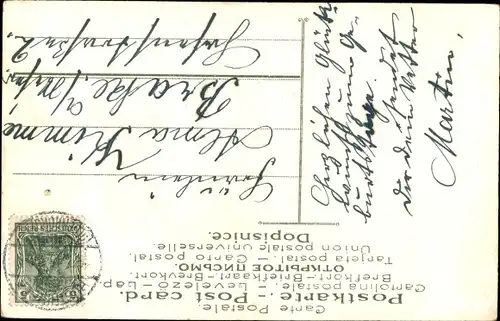 Carte Postale.
Postkarte.- Post card.
Cartolina postale.- Levelező-Lap.
Brefkort-Briefkaart.-Brevkort.
ОТКРЫТОЕ ПИСЬМО.
Tarjeta postal.- Carto postal.
Union postale universelle.
Dopisnice.
Fräulein
Alma Kimme
Brake a/Weser.
Hafenstrasse 2.
Herzlichen Glück-
wunsch zum Ge-
burtstage.
Dir sendet
dein Vetter
Martin.